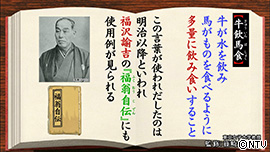 【牛飲馬食】
牛が水を飲み
馬がものを食べるように
多量に飲み食いすること
この言葉が使われだしたのは
明治以降といわれ
福沢諭吉の『福翁自伝』にも
使用例が見られる
福翁自伝
©NTV